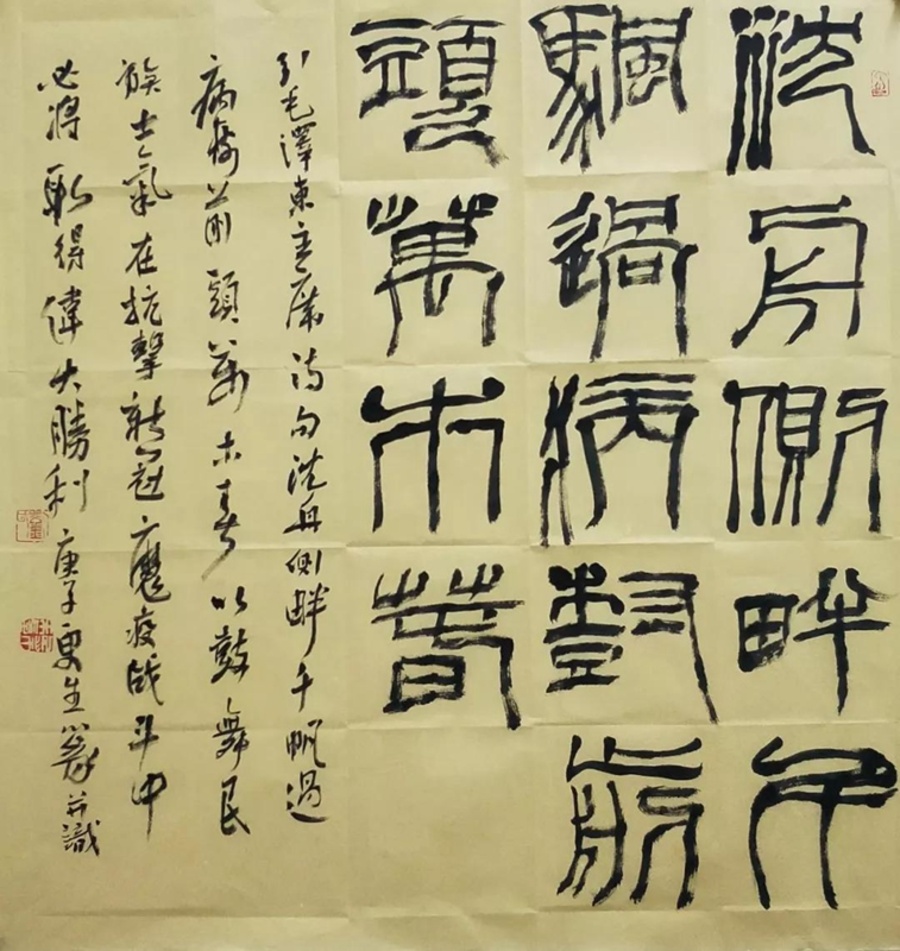 沈舟側畔千
颿過病樹前
頭萬木春
引毛澤東主席詩句沈舟側畔千帆過
病樹前頭萬木春以鼓舞民
族士氣在抗擊新冠魔疫战斗中
必將取得偉大勝利庚子更生篆并識